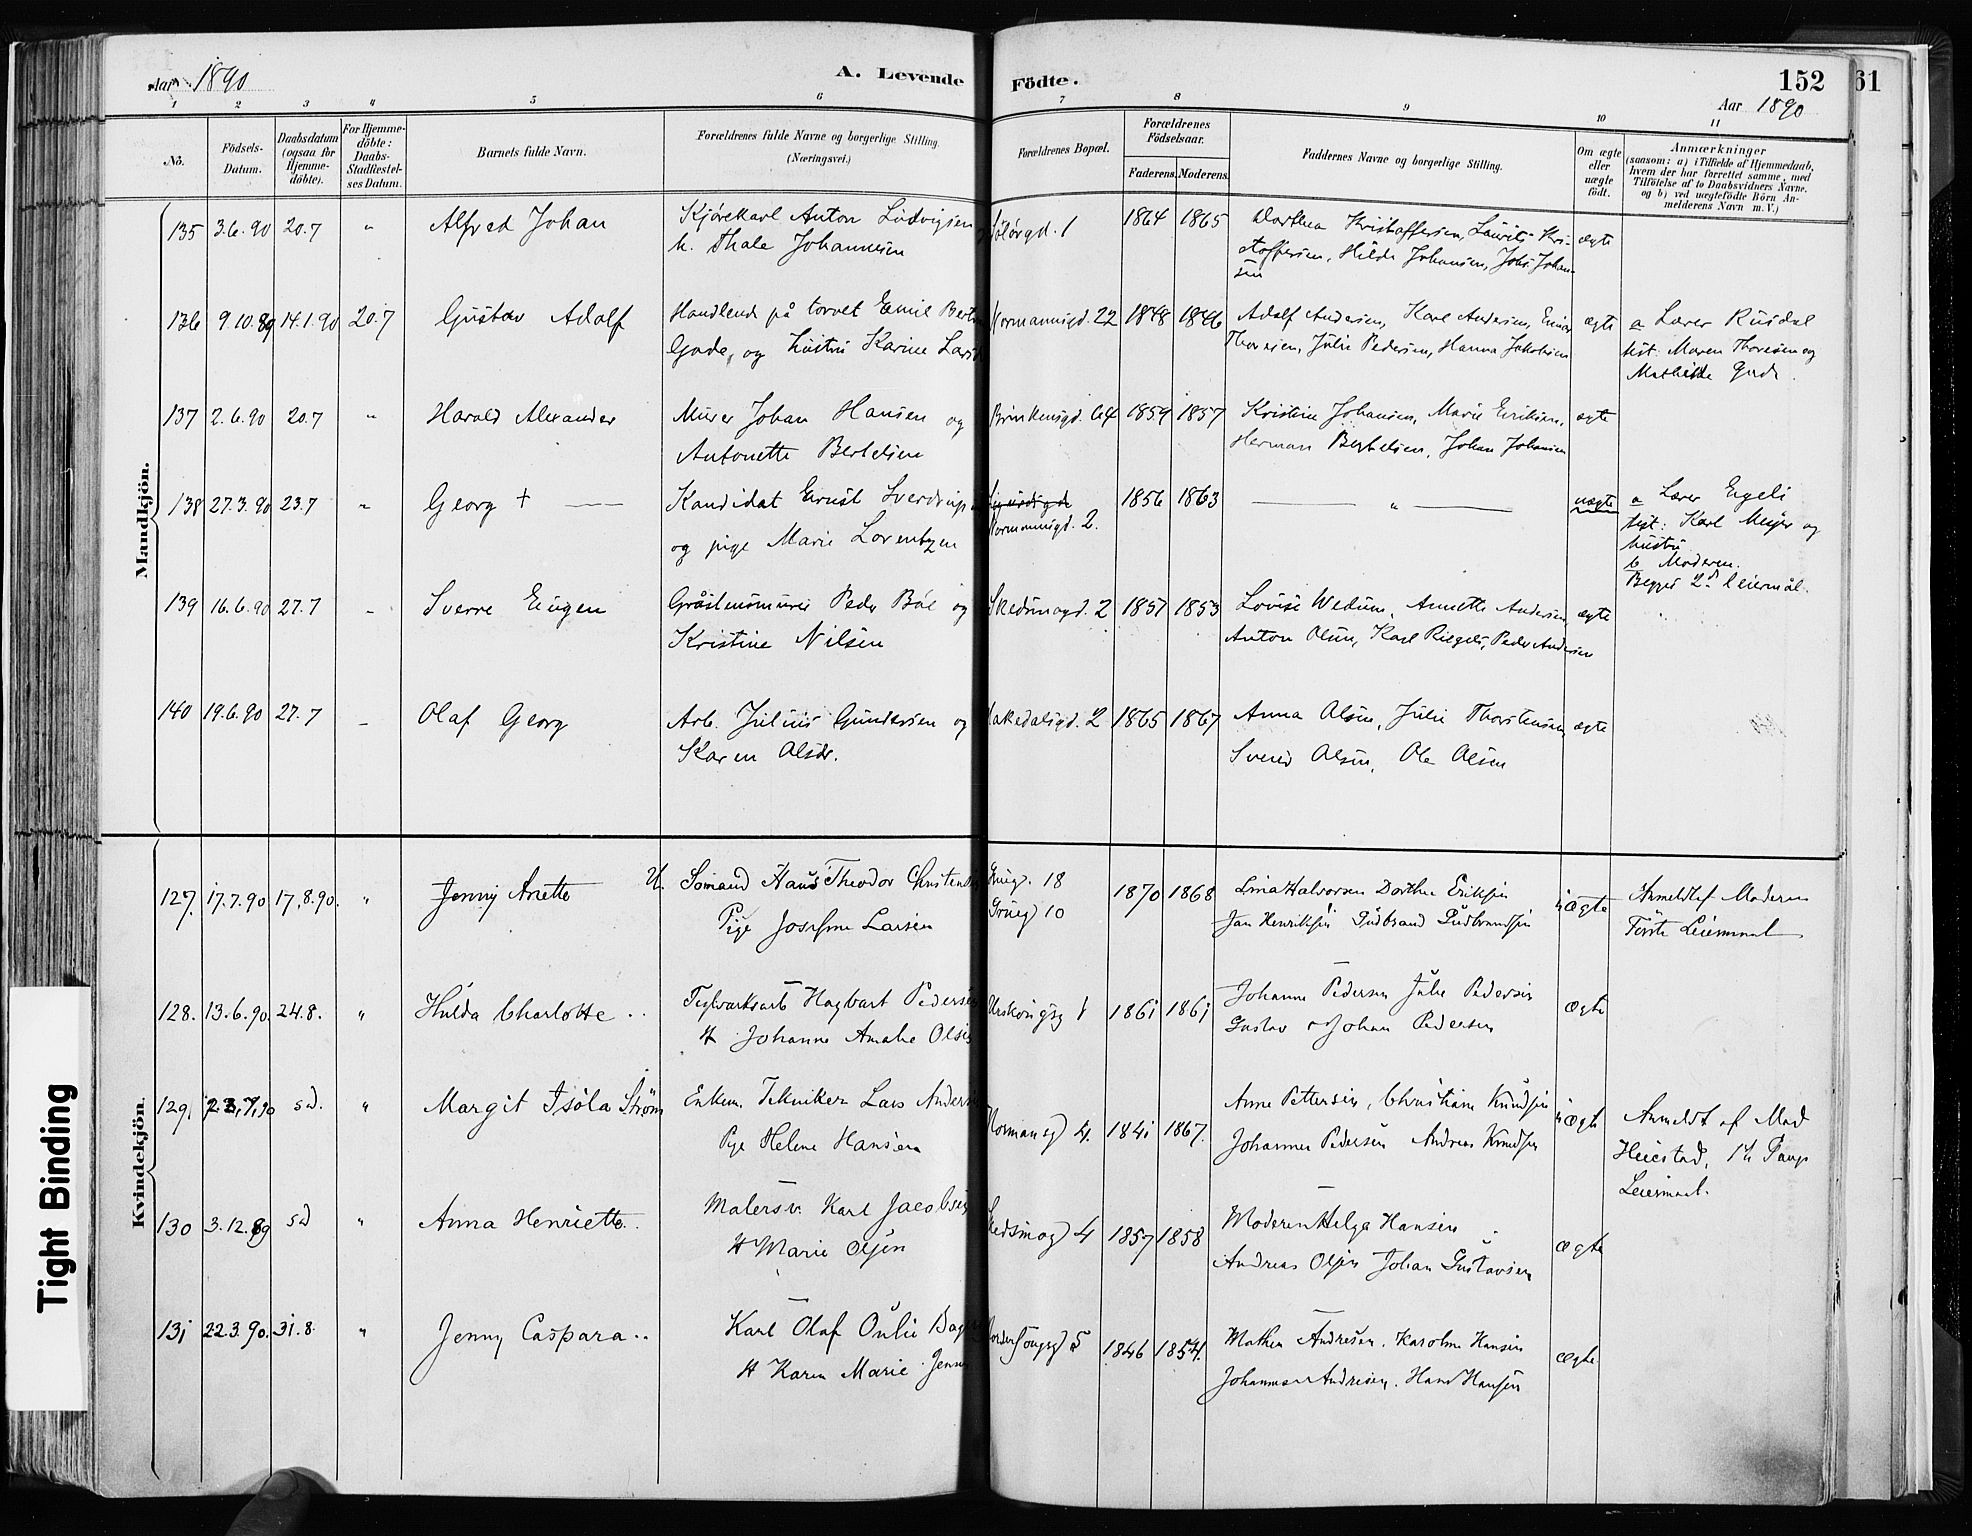 Aar 1890
A. Levende Födte.
152
61
Aar 1890
1 2 3 4 5 6 7 8 9 10 11
No.
Födsels-Datum.
Daabsdatum (ogsaa for Hjemme-döbte).
For Hjemme-döbte: Daabs-Stadfæstel-ses Datum.
Barnets fulde Navn.
Forældrenes fulde Navne og borgerlige Stilling.
(Næringsvei.)
Forældrenes Bopæl.
Forældrenes Födselsaar.
Faderens. Moderens.
Faddernes Navne og borgerlige Stilling.
Om ægte eller uægte födt.
Anmærkninger
(saasom: a) i Tilfælde af Hjemmedaab,
hvem der har forrettet samme, med
Tilföielse af to Daabsvidners Navne.
og b) ved uægtefödte Börn An-
melderens Navn m. V.)
Mandkjön.
135 3.6.90 20.7 " Alfred Johan Kjørekarl Anton Ludvigsen 1 1864 1865 Dorthea Kristoffersen, Laurits Kri- ægte
h. Thale Johannesen stoffersen, Hilda Johansen, Johs. Johan-
sen
136 9.10.89 14.1.90 20.7 Gustav Adolf Handlende på torvet Emil Normannsgd. 22 1848 1846 Adolf Andersen, Karl Andersen, Einar ægte a Lærer Rusdal
Gade, og hustru Karine Thoresen, Julie Pedersen, Hanna Jakobsen test: Maren Thoresen og
Mathilde Gade.
137 2.6.90 20.7 " Harald Alexander Murer Johan Hansen og Brinkensgd. 64 1859 1857 Kristine Johansen, Marie Eriksen, ægte
Antonette Bertelsen Herman Berthelsen, Johan Johansen
138 27.3.90 23.7 " Georg + Kandidat Ernst Sverdrup 1856 1863 " uægte a Lærer Engeli
og pige Marie Lorentzen Normannsgd. 2. test: Karl Meyer og
hustru
b Moderen.
Begges 2d leiermål.
139 16.6.90 27.7 " Sverre Eugen Gråstensmurer Peder Bøe og Skedsmogd. 2 1857 1853 Lovise Wedum, Annette Andersen ægte
Kristine Nilsen Anton Olsen, Karl Riegels, Peder Andersen
140 19.6.90 27.7 " Olaf Georg Arb. Julius Gundersen og Hakedalsgd. 2 1865 1867 Anna Olsen, Julie Thorstensen, ægte
Karen Olsdr. Sverid Olsen, Ole Olsen
Kvindekjön.
127. 17.7.90 17.8.90. " Jenny Anette U. Sömand Hans Theodor 18 1870 1868 Lina Halvorsen Dorthe Eriksen uægte Anmeldt af Moderen
Pige Josefine Larsen 10 Jan Henriksen Gudbrand Gudbrandsen Förste Leiermaal
128. 13.6.90. 24.8. " Hulda Charlotte Teglverksarb Hagbart Pedersen 1 1861 1861 Johanne Pedersen Julie Pedersen ægte
H Johanne Amalie Olsen Gustav & Johan Pedersen
129. 23.7.90 sd. " Margit Isöla Ström Enkem. Tekniker Lars Andersen Normansgd 4. 1841 1867. Anne Pettersen, Christiane Knudsen uægte Anmeldt af Mad
Pige Helene Hansen Johannes Pedersen Andreas Knudsen Heiestad,
Leiermaal.
130 3.12.89 sd " Anna Henriette. Malersv. Karl Jacobsen Skedsmogd 4 1857 1858 Moderen Helga Hansen ægte
H Marie Olsen Andreas Olsen Johan Gustavsen
131 22.3.90. 31.8. " Jenny Caspara Karl Olaf 5 1846 1854. Mathea Andresen. Karoline Hansen ægte
H Karen Marie Jensen Johannes Andresen. Hans Hansen
Tight Binding